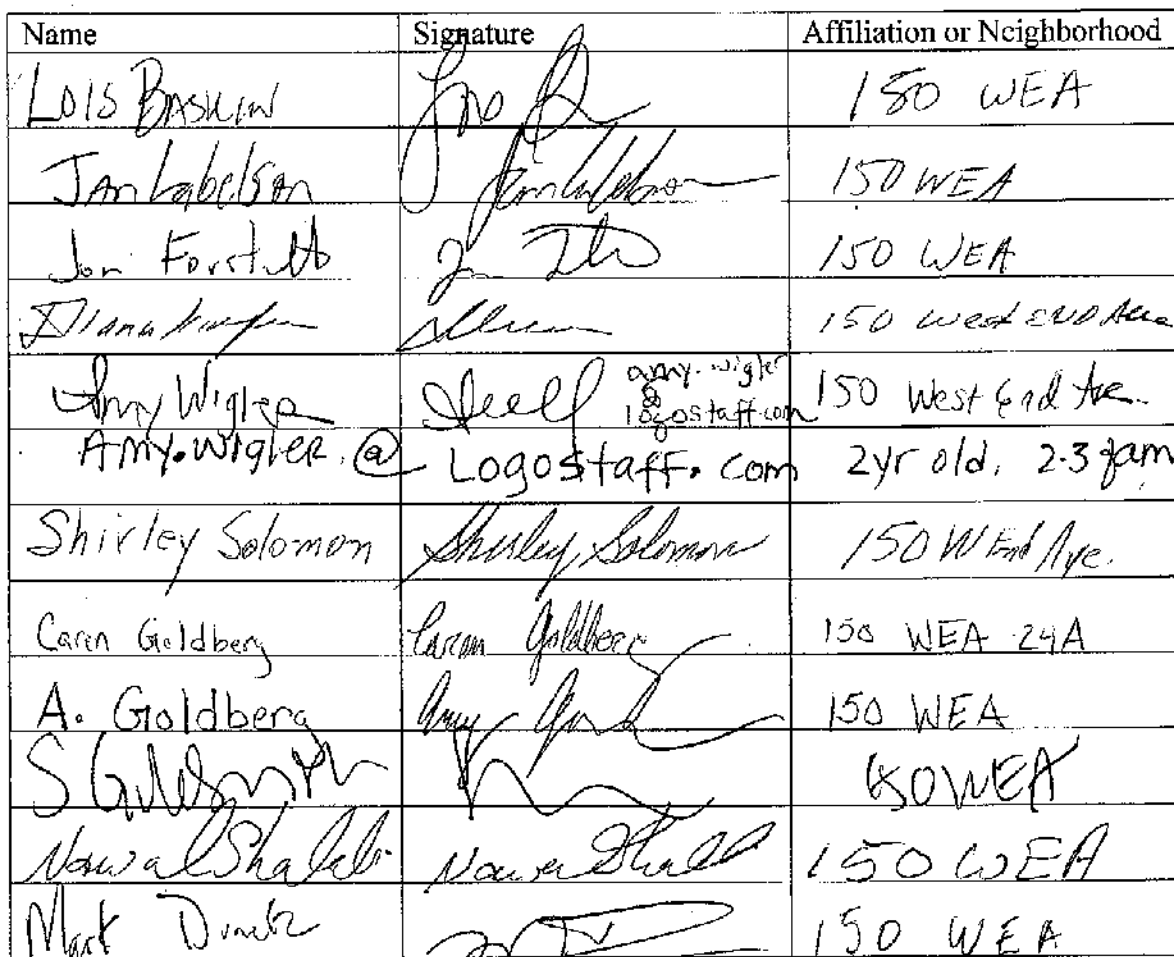 Name Signature Affiliation or Neighborhood
Lois Baskin 150 WEA
Jan Labelson 150 WEA
Jon 150 WEA
Diana 150 West END Ave
Amy Wigler amy.wigler @ logostaff.com 150 West End Ave.
Amy.Wigler @ Logostaff.com 2yr old, 2.3
Shirley Solomon Shirley Solomon 150 W End Ave.
Caren Goldberg Caren Goldberg 150 WEA 24A
A. Goldberg Amy 150 WEA
S Goldsmith 150 WEA
Nawal Shalabi Nawal 150 WEA
Mark 150 WEA